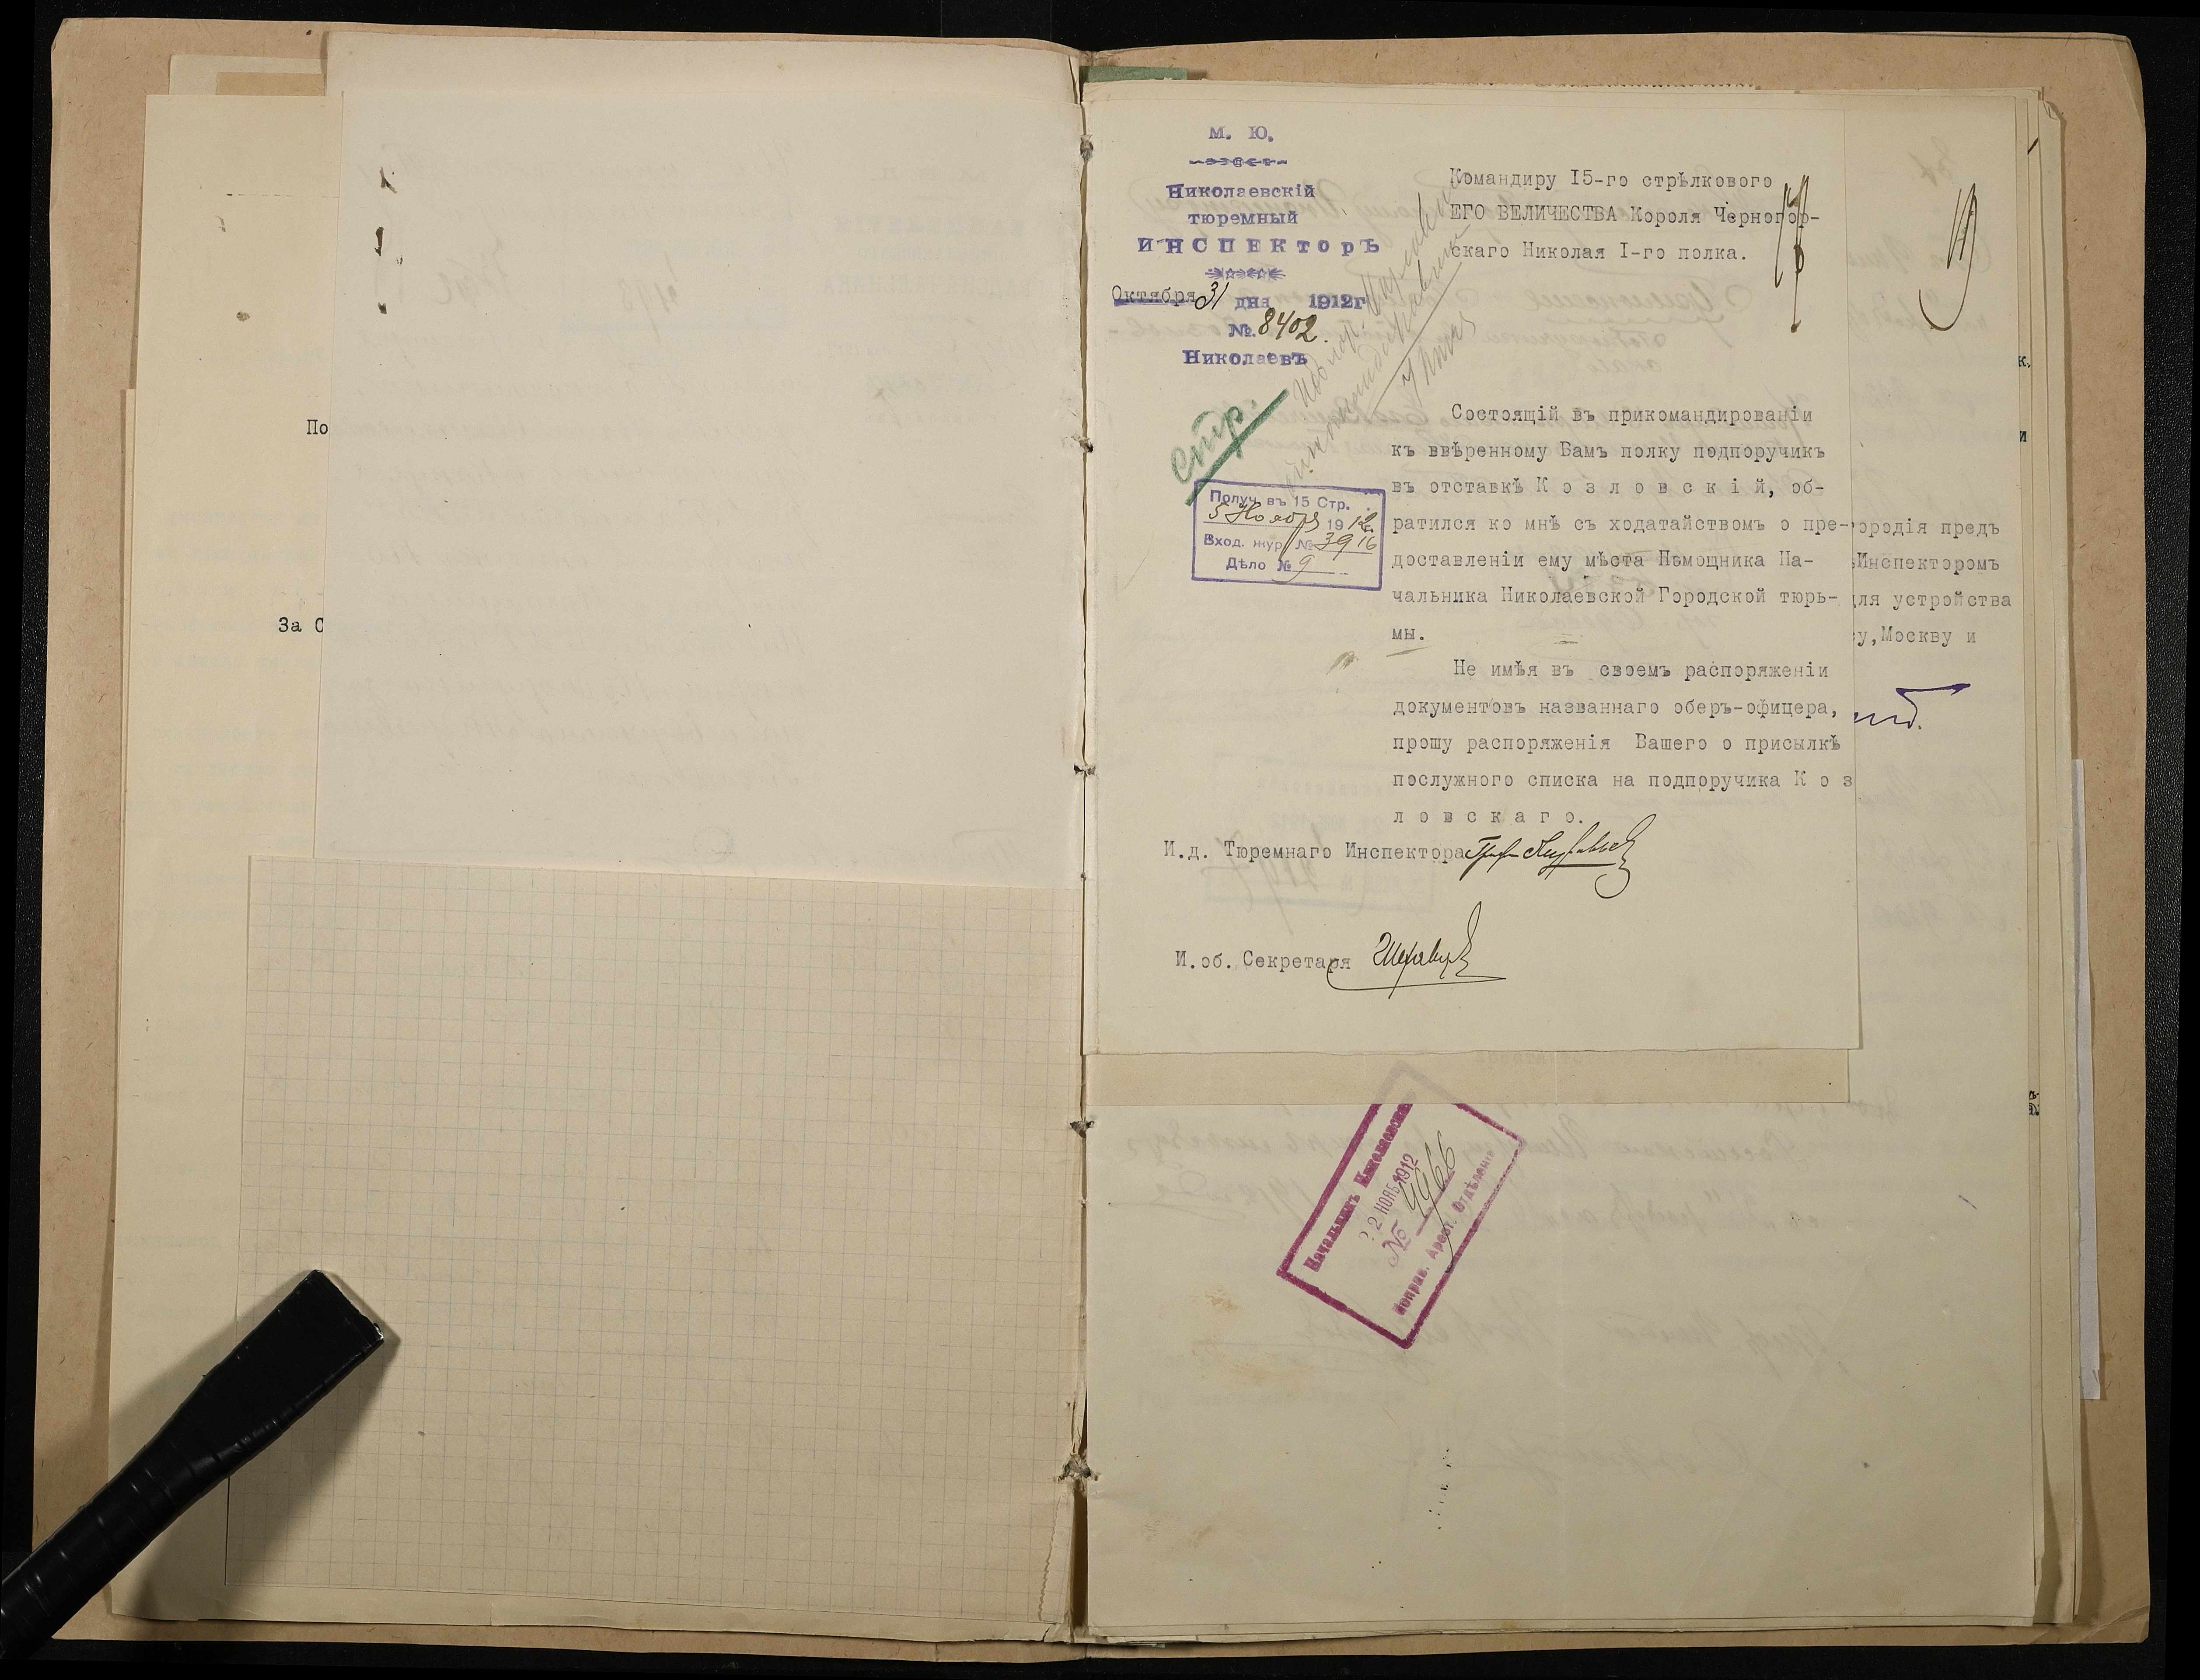 По
За С
М. Ю.
Николаевскій
тюремный
ИНСПЕКТОРЪ
Октября 31 дня 1912г
№ 8402.
Николаевъ
Командиру 15-го стрѣлкового
ЕГО ВЕЛИЧЕСТВА Короля Черногор-
скаго Николая I-го полка.
стр.
Получ. въ 15 Стр.
5 Ноября 1912
Вход. жур. № 3916
Дѣло № 9
Состоящій въ прикомандированіи
къ ввѣренному Вамъ полку подпоручикъ
въ отставкѣ К о з л о в с к і й, об-
ратился ко мнѣ съ ходатайствомъ о пре-
доставленіи ему мѣста Помощника На-
чальника Николаевской Городской тюрь-
мы.
Не имѣя въ своемъ распоряженіи
документовъ названнаго оберъ-офицера,
прошу распоряженія Вашего о присылкѣ
послужного списка на подпоручика К о з
л о в с к а г о.
И.д. Тюремнаго Инспектора
И.об. Секретаря
ородія предъ
Инспекторомъ
для устройства
у,Москву и
к.
и
Начальникъ Николаевск
22 НОЯБ 1912
№ 4966
Исправ. Арест. Отдѣленія